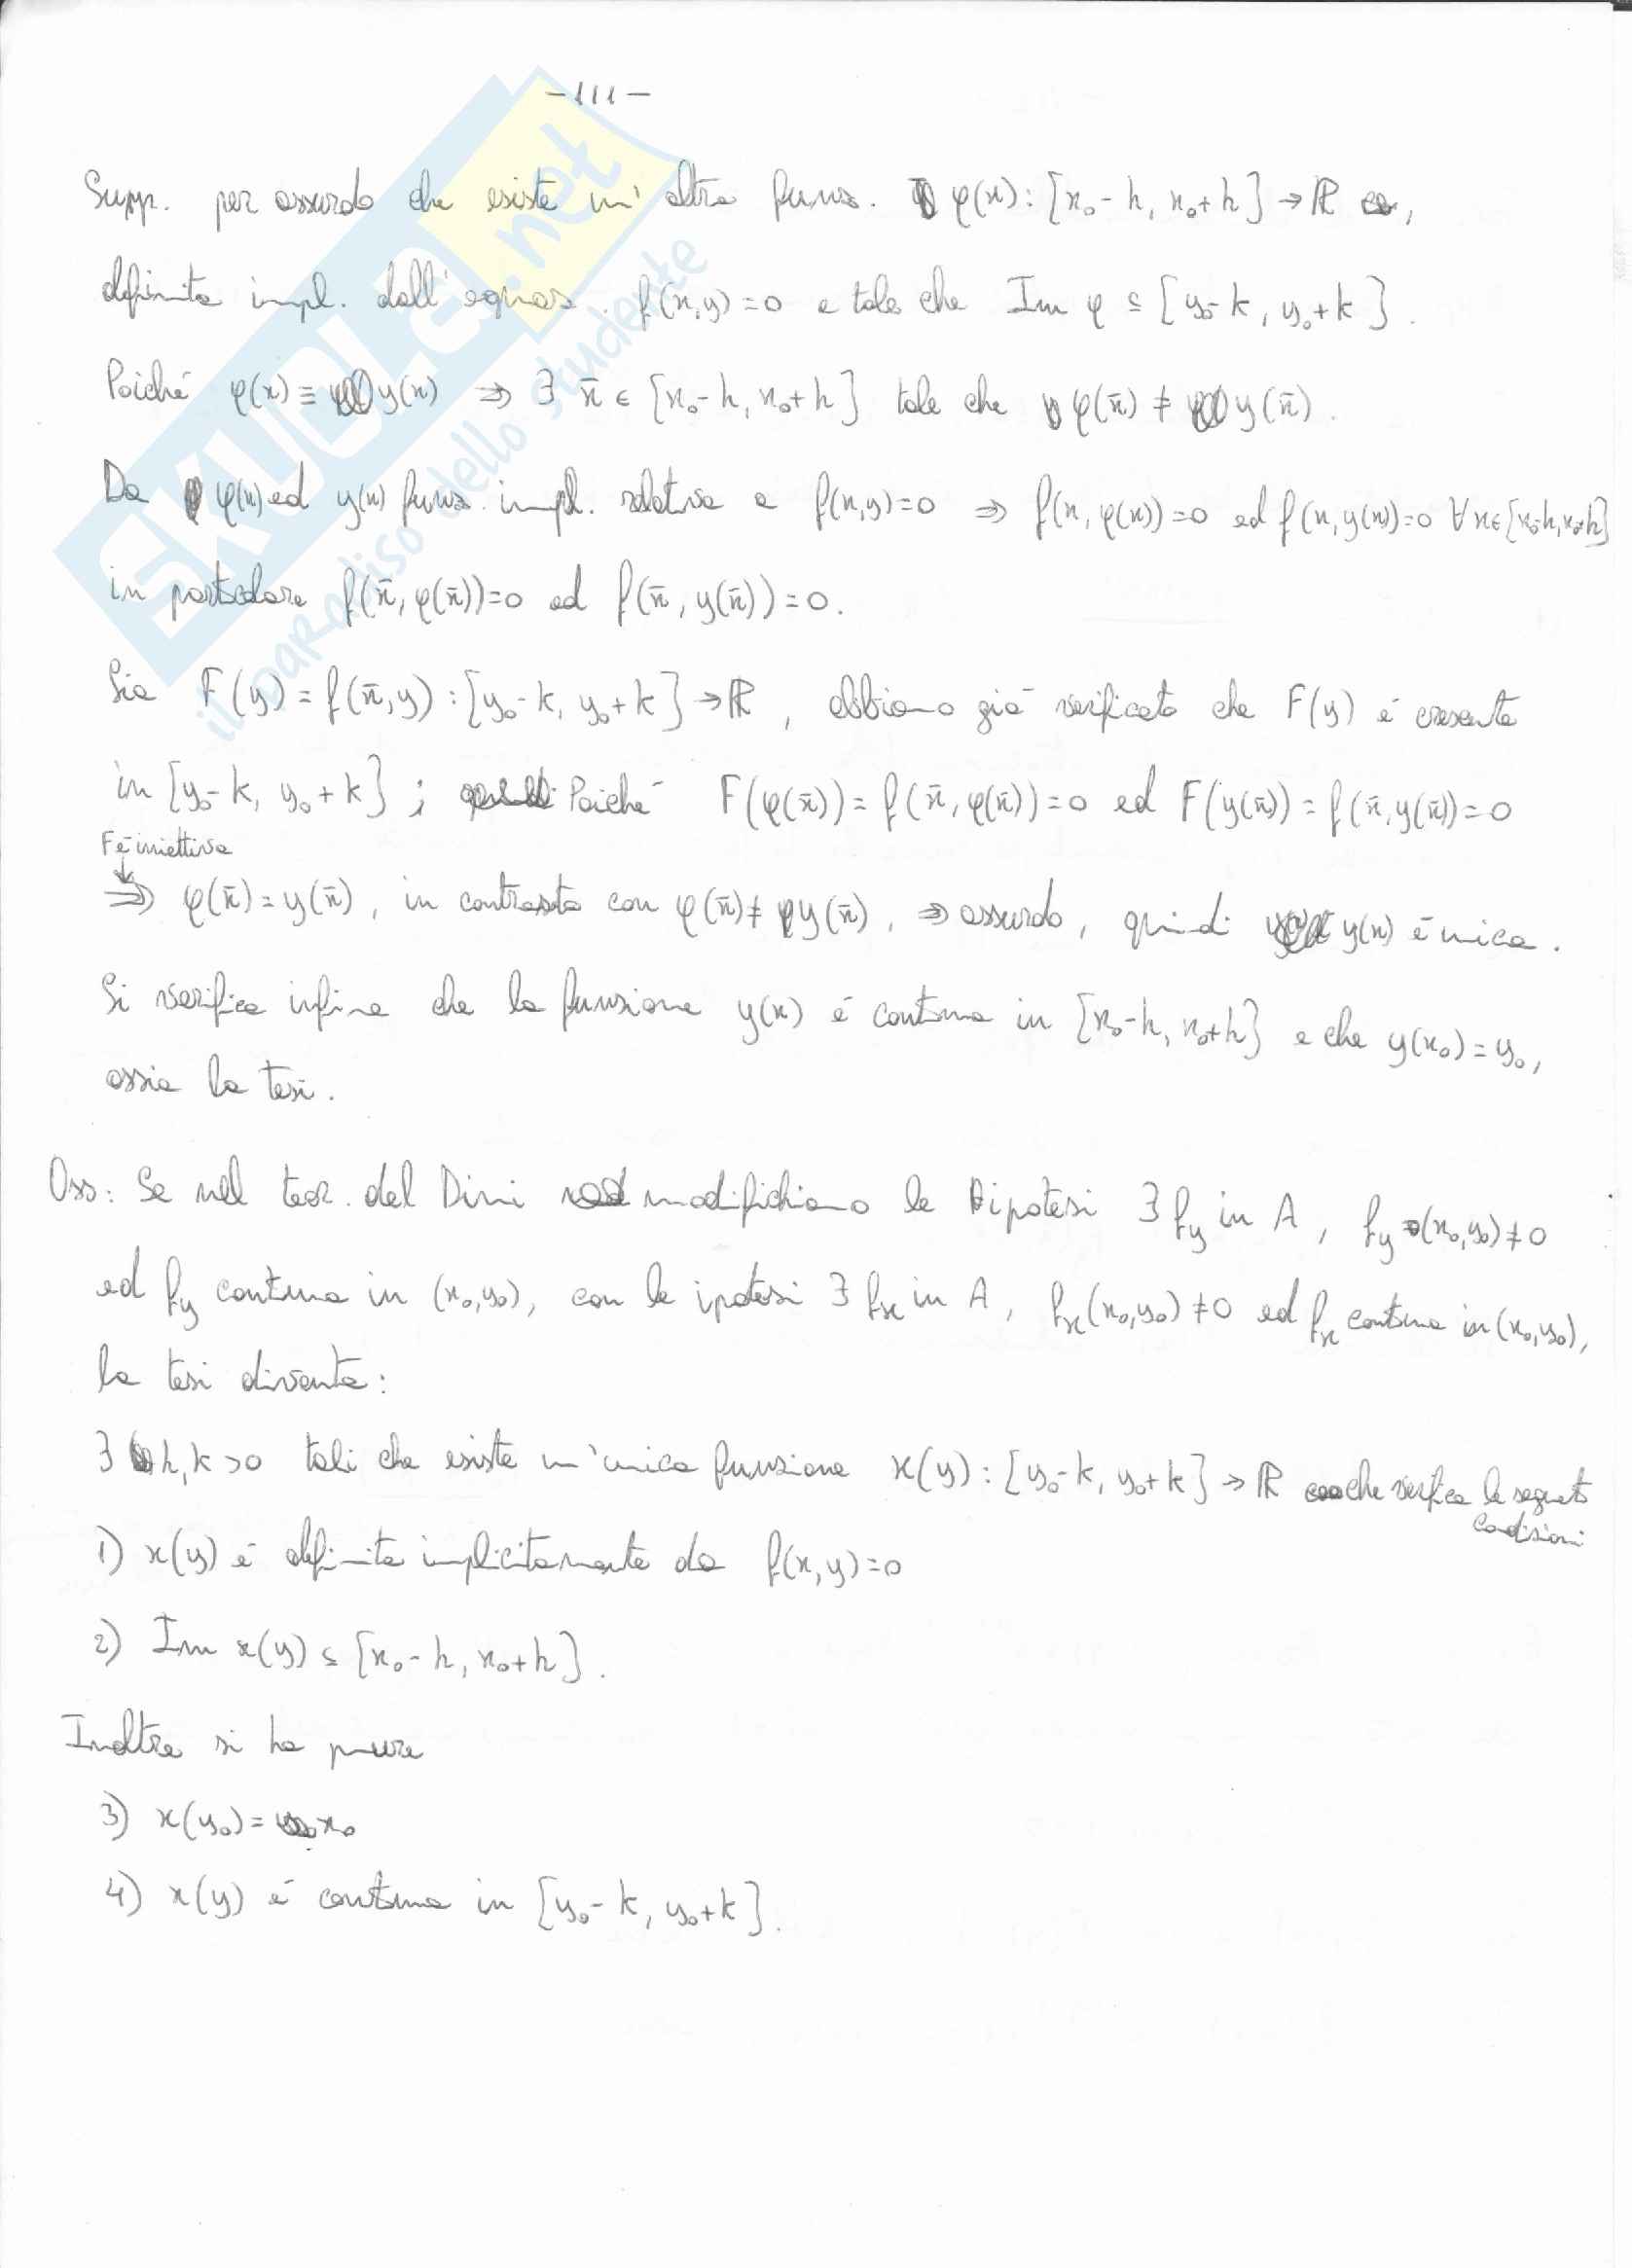 -111-
Supp. per assurdo che esiste un'altra funz. φ(x): [x₀-h, x₀+h] → ℝ,
definita impl. dall'equaz. f(x,y)=0 e tale che Im φ ⊆ [y₀-k, y₀+k].
Poiché φ(x) ≡ y(x) ⇒ ∃ x̄ ∈ [x₀-h, x₀+h] tale che φ(x̄) ≠ y(x̄).
Da φ(x) ed y(x) funz. impl. relative a f(x,y)=0 ⇒ f(x, φ(x))=0 ed f(x, y(x))=0 ∀x∈[x₀-h, x₀+h]
in particolare f(x̄, φ(x̄))=0 ed f(x̄, y(x̄))=0.
Sia F(y) = f(x̄,y) : [y₀-k, y₀+k] → ℝ, abbiamo già verificato che F(y) é crescente
in [y₀-k, y₀+k] ; Poiché F(φ(x̄)) = f(x̄, φ(x̄))=0 ed F(y(x̄)) = f(x̄, y(x̄))=0
F é iniettiva
↓
⇒ φ(x̄) = y(x̄), in contrasto con φ(x̄) ≠ y(x̄), ⇒ assurdo, quindi y(x) é unica.
Si verifica infine che la funzione y(x) é continua in [x₀-h, x₀+h] e che y(x₀) = y₀,
ossia la tesi.
Oss: Se nel teor. del Dini modifichiamo le ipotesi ∃ f_y in A, f_y(x₀,y₀) ≠ 0
ed f_y continua in (x₀,y₀), con le ipotesi ∃ f_x in A, f_x(x₀,y₀) ≠ 0 ed f_x continua in (x₀,y₀),
la tesi diventa:
∃ h,k >0 tali che esiste un'unica funzione x(y) : [y₀-k, y₀+k] → ℝ che verifica le seguenti
condizioni
1) x(y) é definita implicitamente da f(x,y)=0
2) Im x(y) ⊆ [x₀-h, x₀+h].
Inoltre si ha pure
3) x(y₀) = x₀
4) x(y) é continua in [y₀-k, y₀+k].
SKUOLA.net
il paradiso dello studente